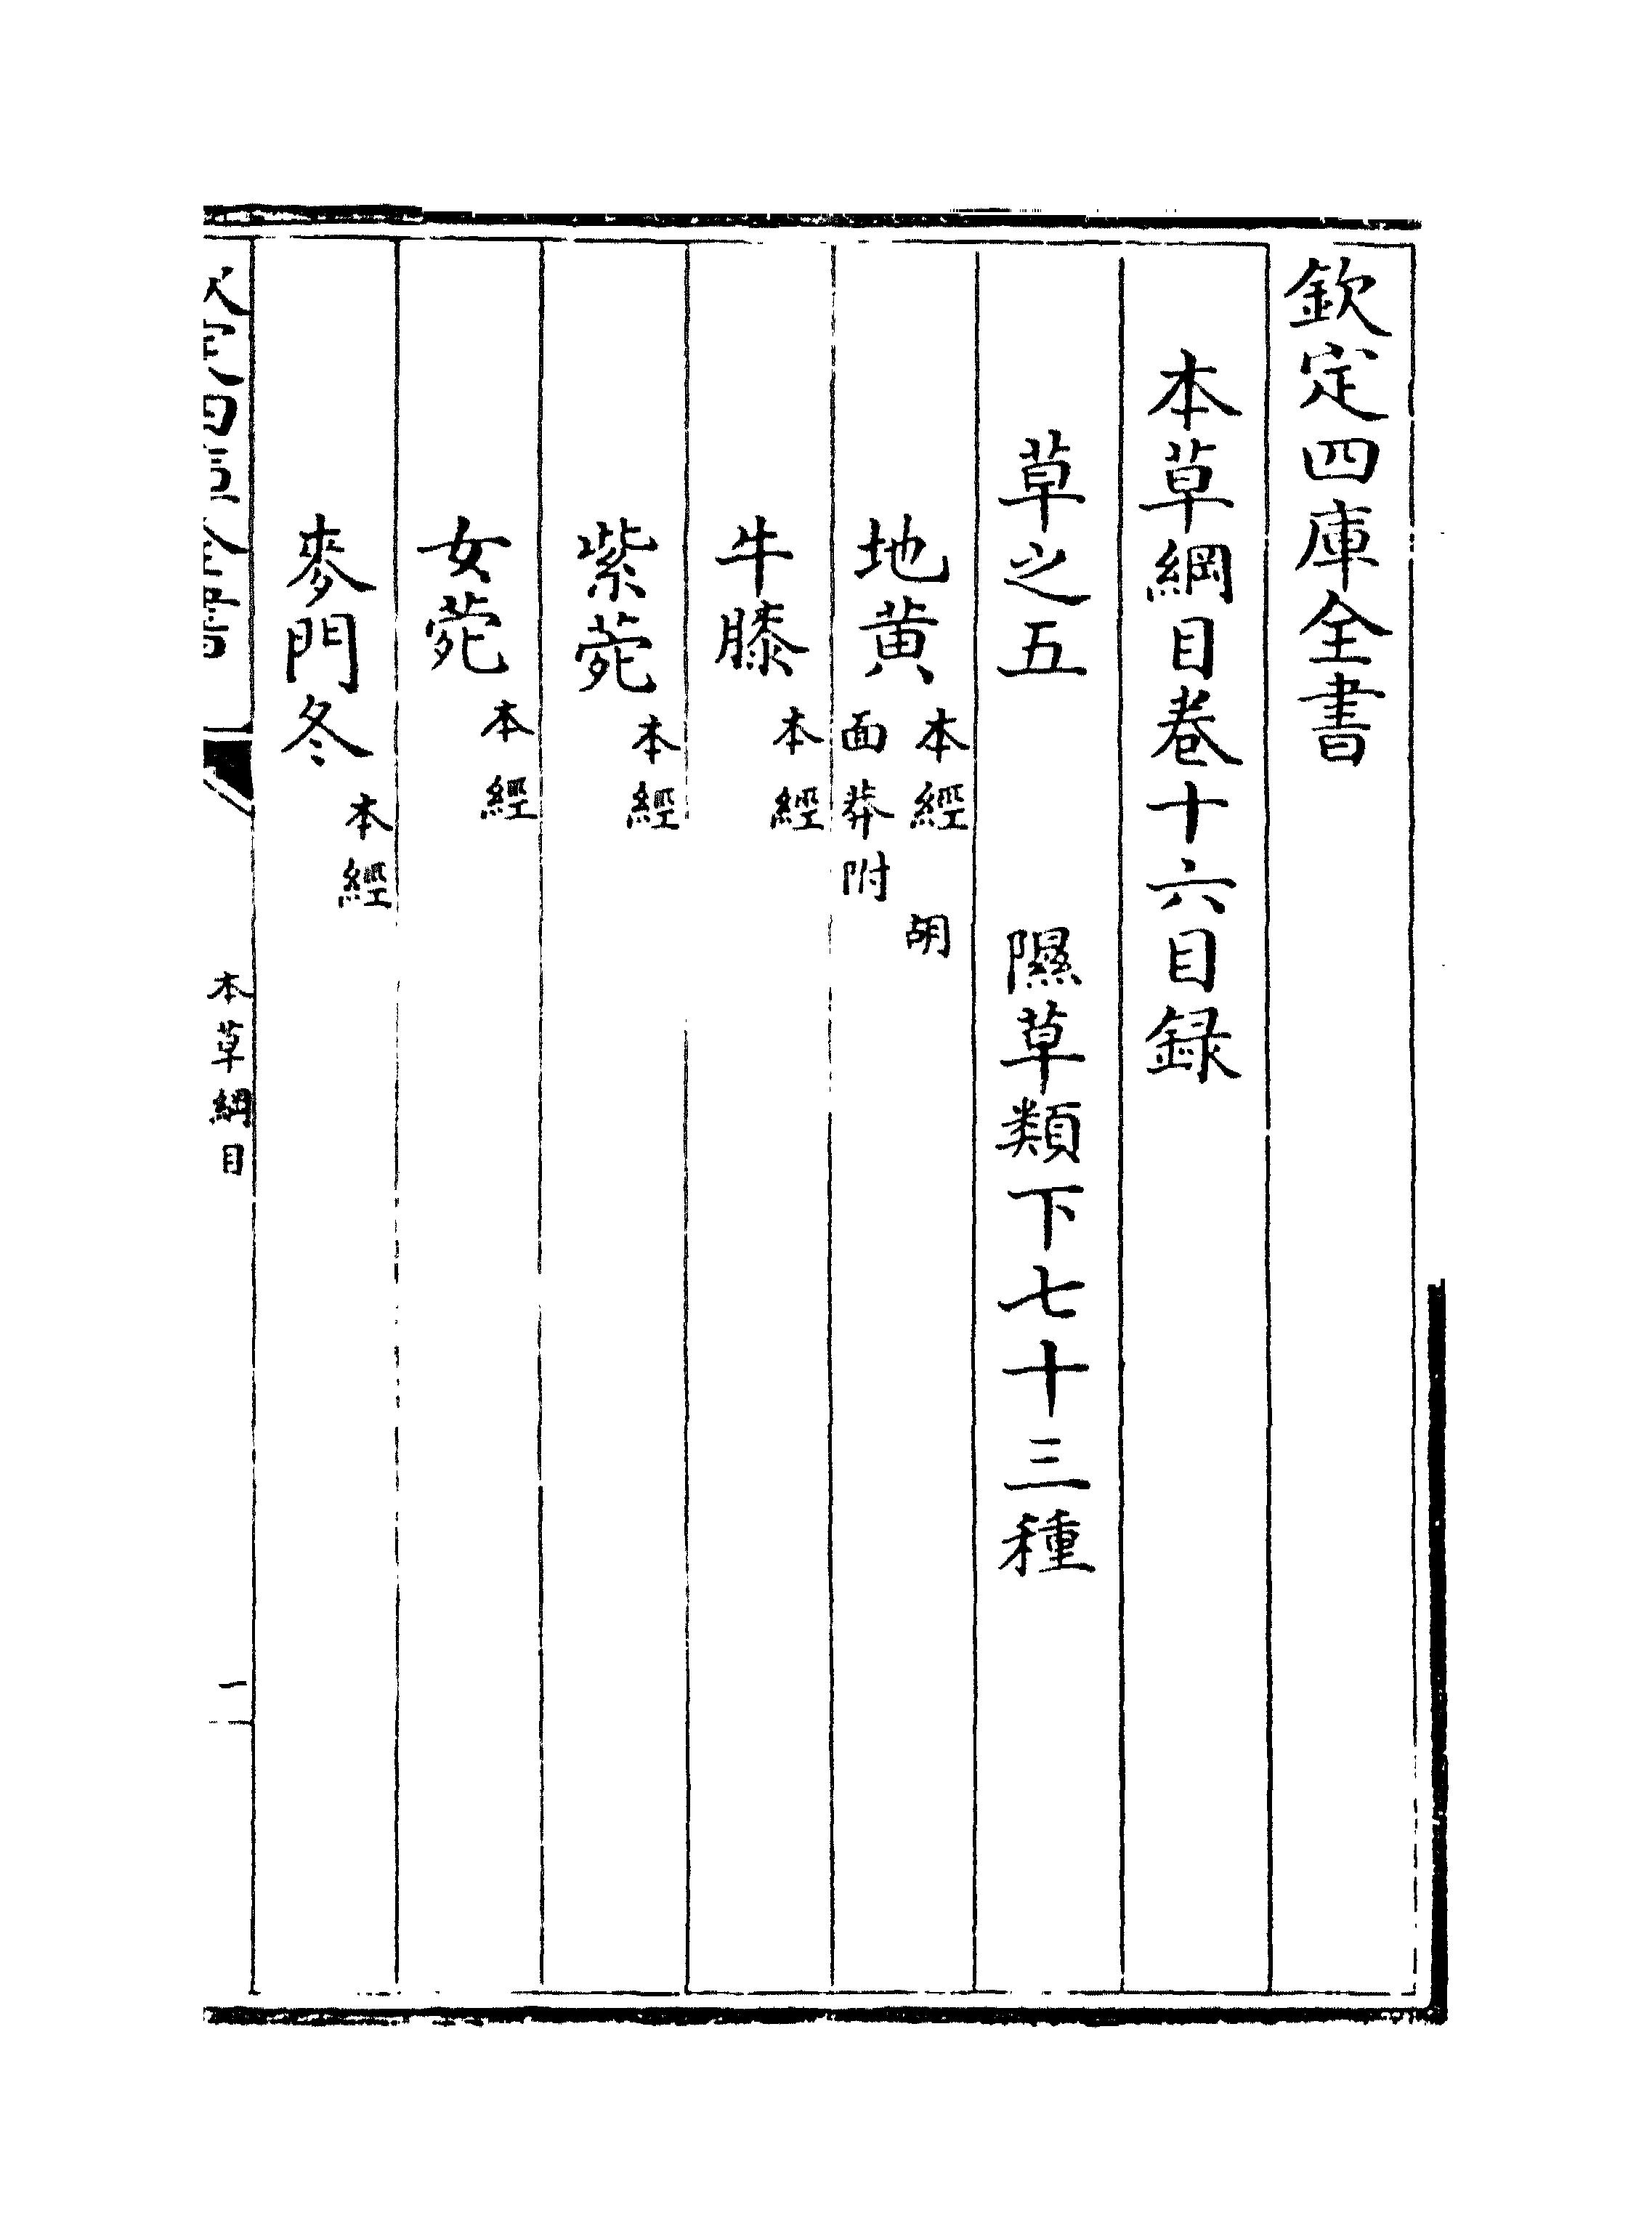 欽定四庫全書
本草綱目卷十六目録
草之五　隰草類下七十三種
地黄　本經　胡
面莽附
牛膝　本經
紫菀　本經
女菀　本經
麥門冬　本經
欽定四庫全書　本草綱目　一